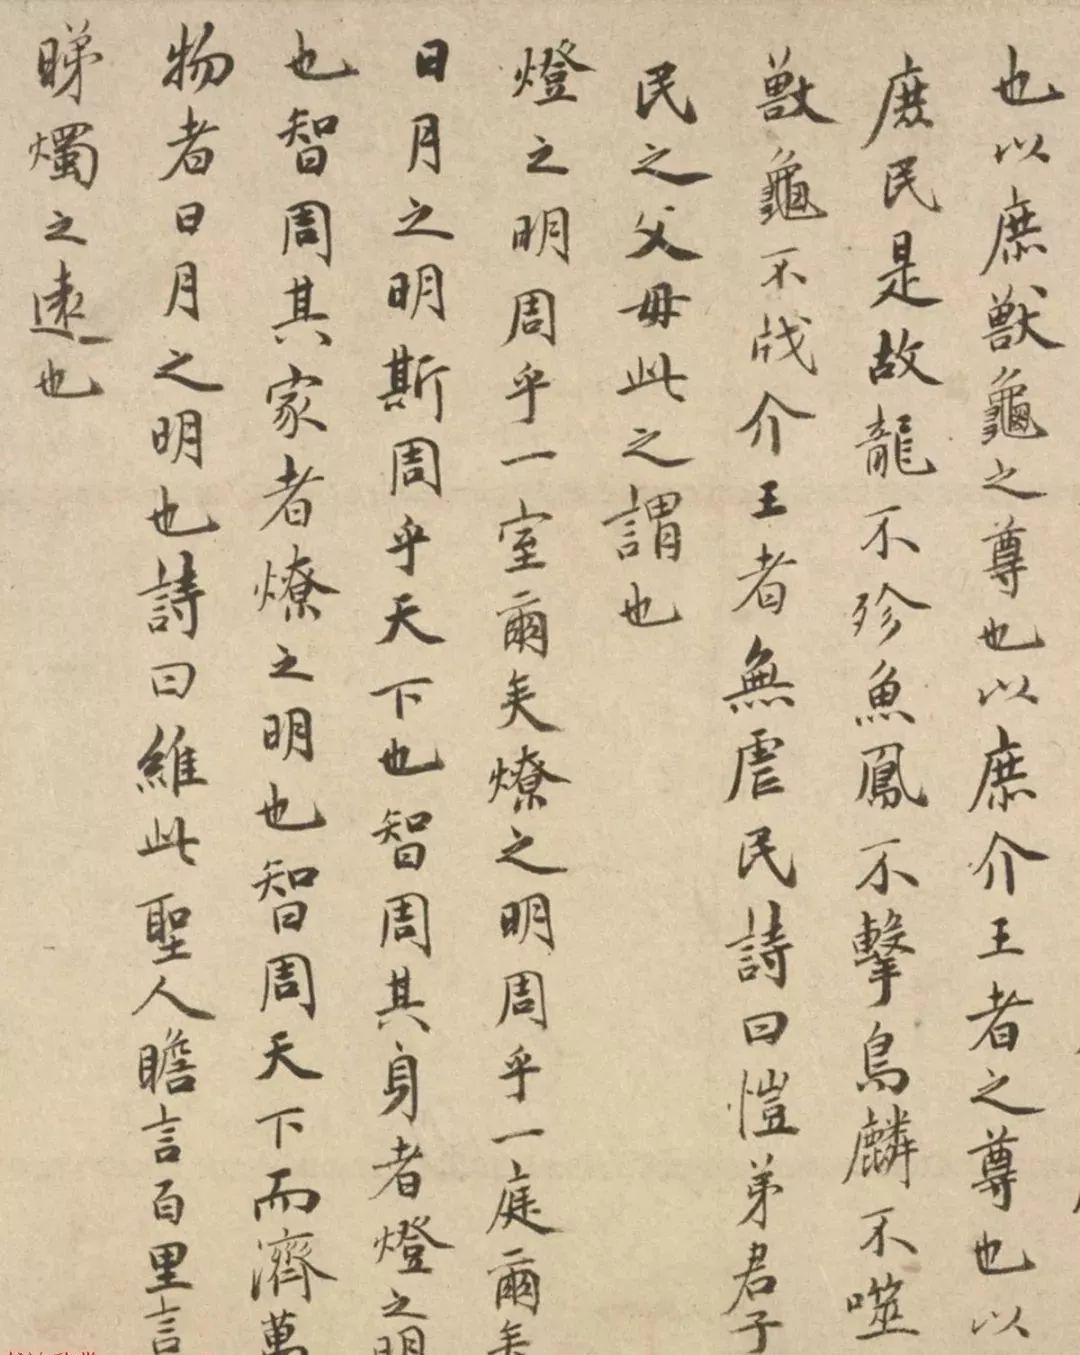 也以庶獸龜之尊也以庶介王者之尊也以
庶民是故龍不殄魚鳳不擊鳥麟不噬
獸龜不戕介王者無虐民詩曰愷弟君子
民之父毋此之謂也
燈之明周乎一室爾矣燎之明周乎一庭爾矣
日月之明斯周乎天下也智周其身者燈之明
也智周其家者燎之明也智周天下而濟萬
物者日月之明也詩曰維此聖人瞻言百里言
睇燭之遠也